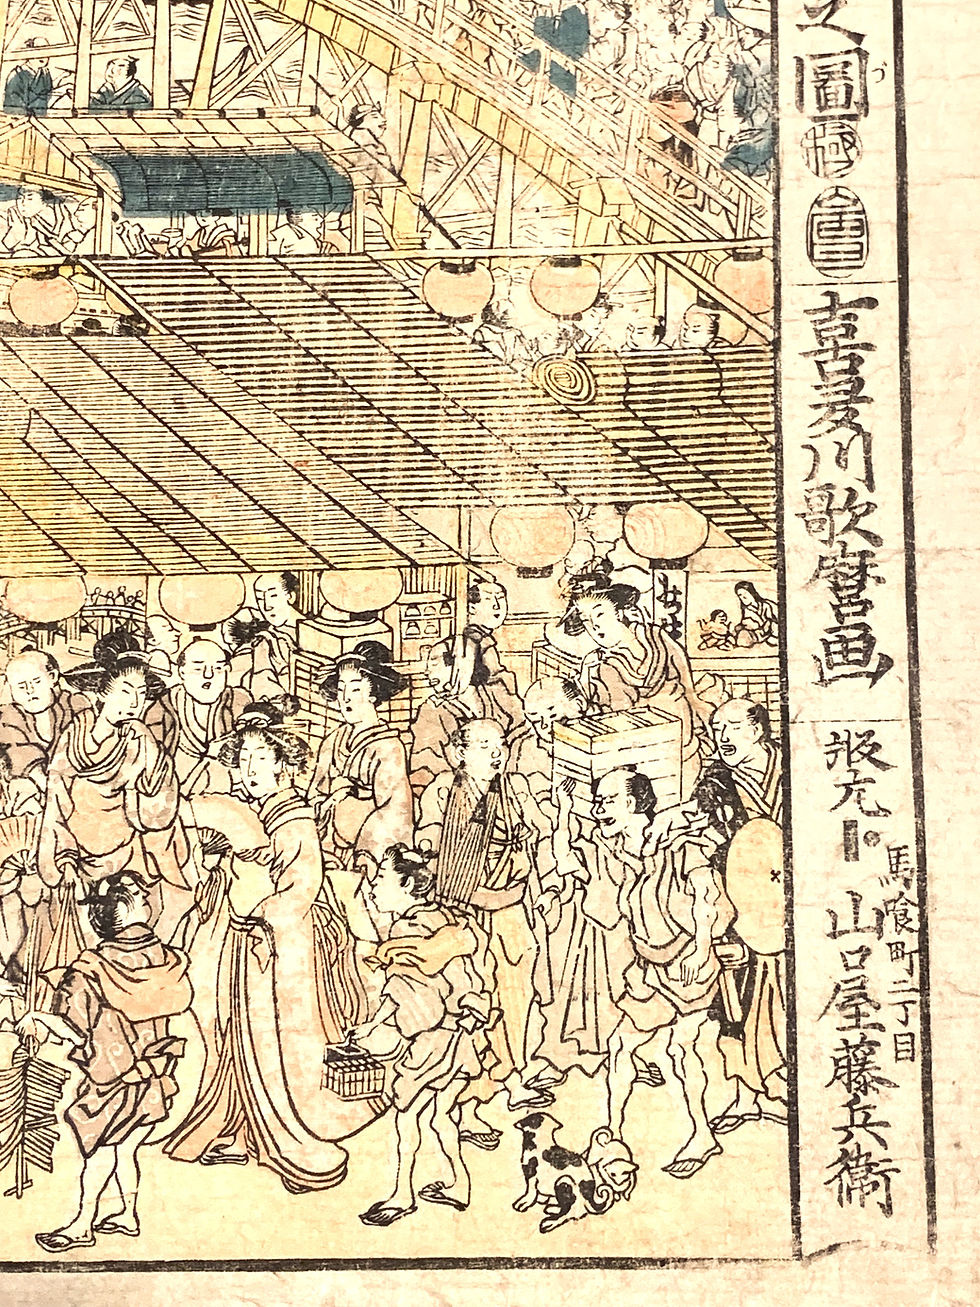 之圖
づ
極
喜多川歌麿画
板元
馬喰町二丁目
山口屋藤兵衛
みづ